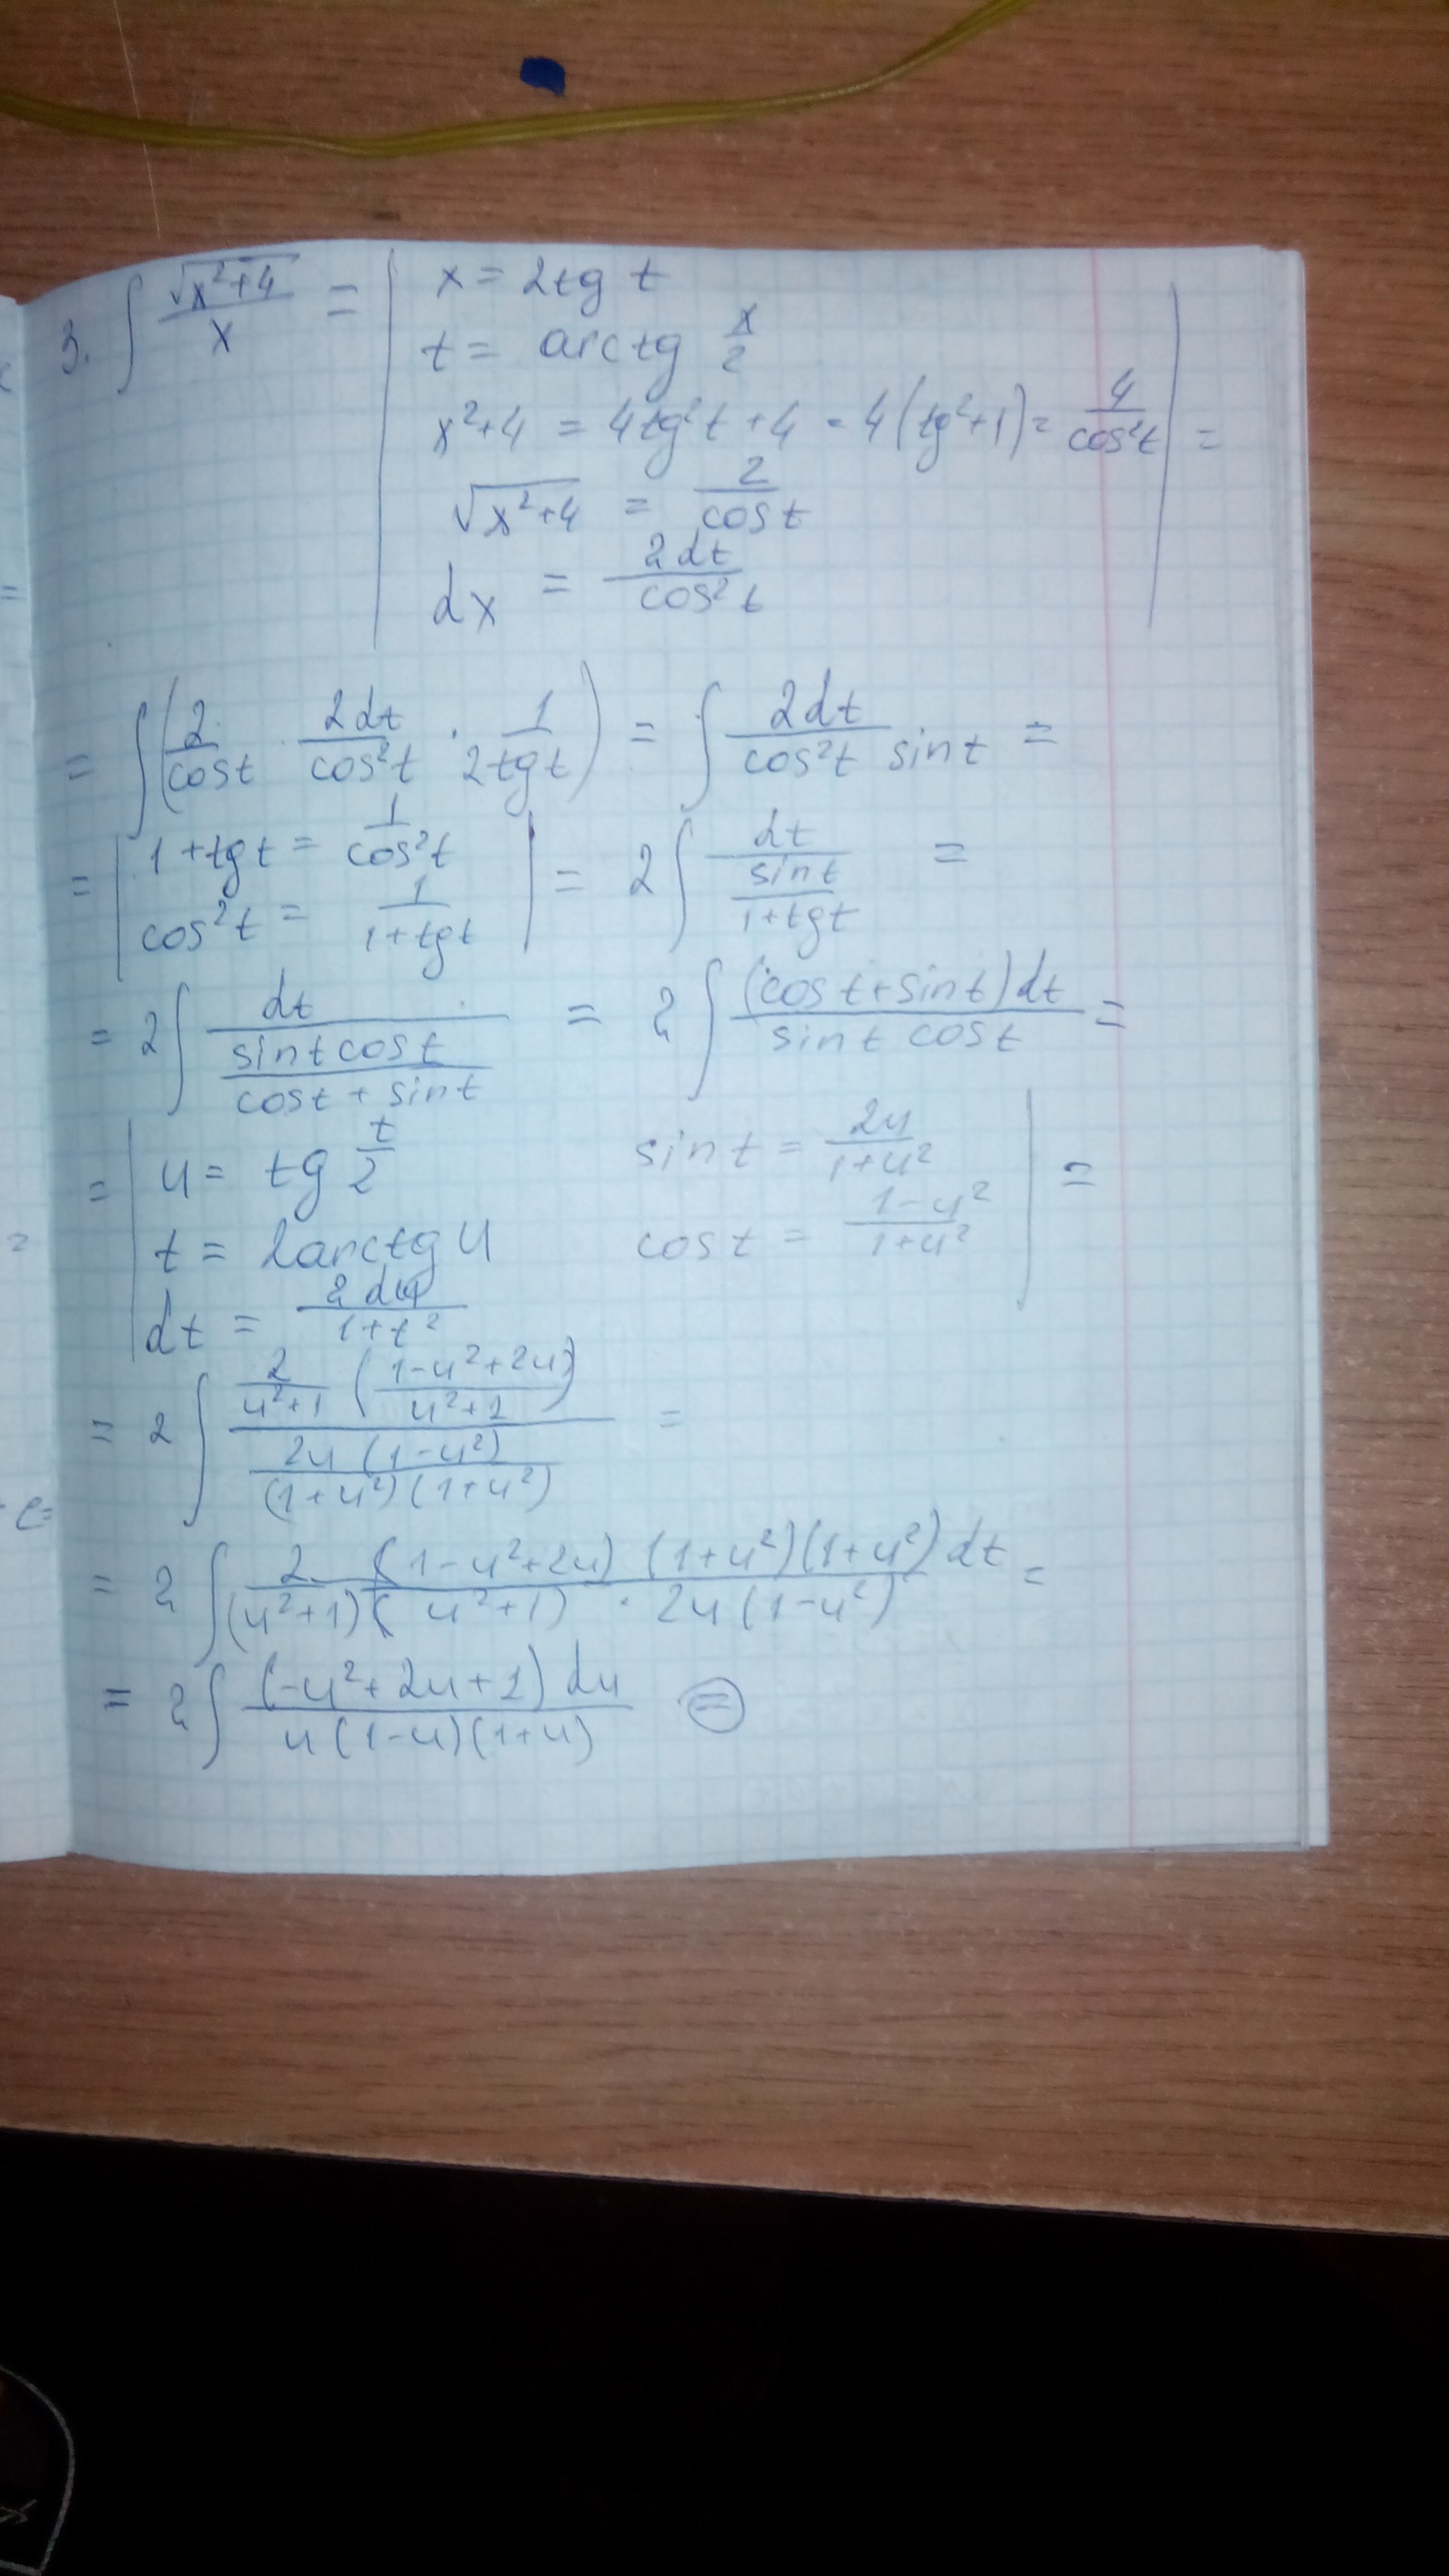 3. ∫ √(x²+4) / x = | x = 2tg t
t = arctg x/2
x²+4 = 4tg²t + 4 = 4(tg²+1) = 4/cos²t | =
√(x²+4) = 2/cos t
dx = 2dt/cos²t
= ∫ (2/cos t · 2dt/cos²t · 1/2tg t) = ∫ 2dt/(cos²t sin t) =
= | 1+tg t = 1/cos²t
cos²t = 1/(1+tg t) | = 2∫ dt/(sin t/(1+tg t)) =
= 2∫ dt/(sin t cos t/(cos t + sin t)) = 2∫ (cos t + sin t)dt/(sin t cos t) =
= | u = tg t/2 sin t = 2u/(1+u²)
t = 2arctg u cos t = (1-u²)/(1+u²) | =
dt = 2du/(1+t²)
= 2∫ (2/(u²+1) ((1-u²+2u)/(u²+1)))/(2u(1-u²)/((1+u²)(1+u²))) =
= 2∫ 2(1-u²+2u)(1+u²)(1+u²)dt/((u²+1)(u²+1) · 2u(1-u²)) =
= 2∫ (-u²+2u+1)du/(u(1-u)(1+u)) =